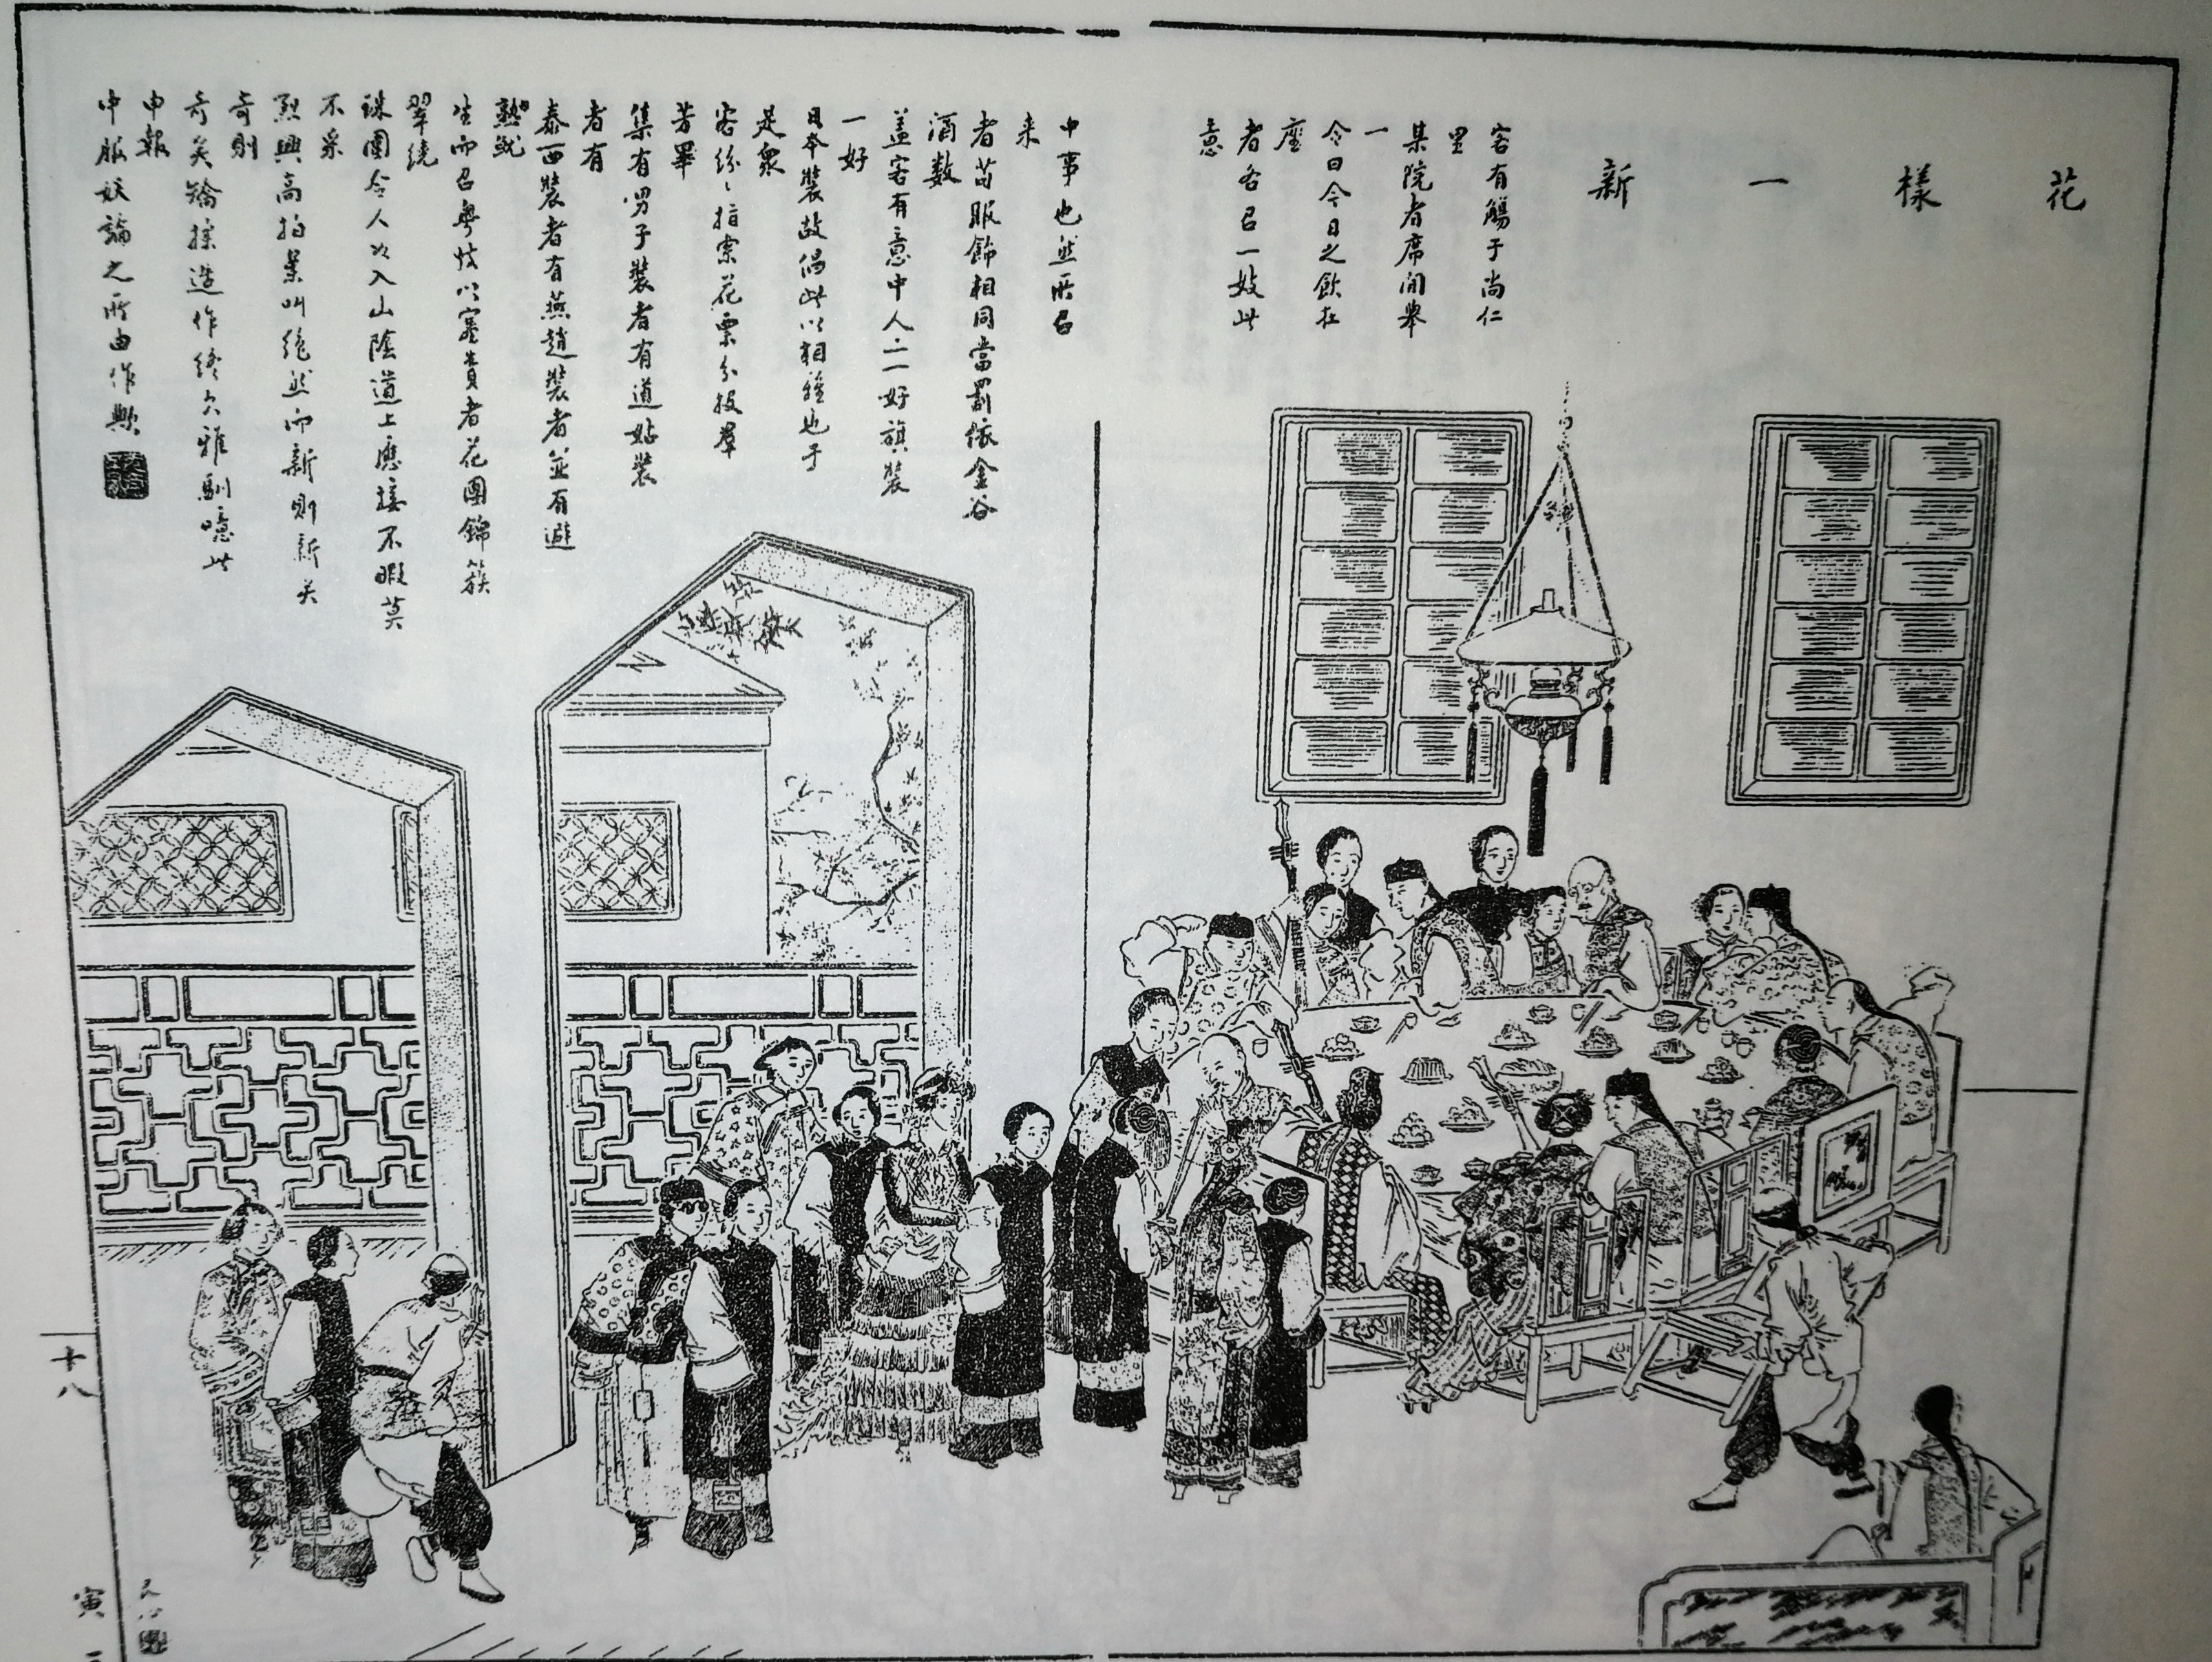 花樣一新
客有觴于尚仁
里
某院者席間舉
一
令曰今日之飲在
座
者各召一妓此
意
中事也然所召
来
者苟服飾相同當罰依金谷
酒數
蓋客有意中人二一好旗裝
一好
日本裝故倡此以相難也于
是衆
客紛〻指索花票分投羣
芳畢
集有男子裝者有道姑裝
者有
泰西裝者有燕趙裝者並有避
熟就
生而召粤妓以塞責者花團錦簇
翠繞
珠圍令人如入山陰道上應接不暇莫
不采
烈興高拍案叫絶然而新則新矣
奇則
奇矣矯揉造作終欠雅馴噫此
申報
中服妖論之所由作歟
十八
寅